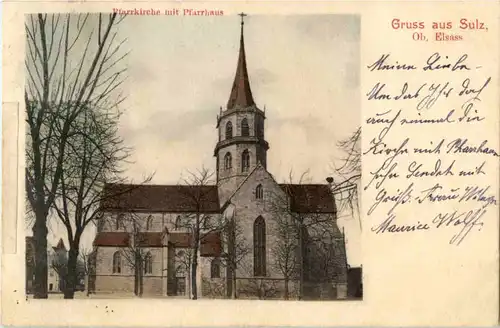 Pfarrkirche mit Pfarrhaus
Gruss aus Sulz,
Ob. Elsass
Meine Liebe
Um das Ihr doch
auch einmal die
Kirche mit Pfarrhaus
sehe sendet mit
Gruß Frau
Maurice Wolff